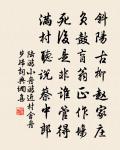 斜陽古柳趙家庄
負鼓盲翁正作場
死後是非誰管得
滿村聽說蔡中郎
陸游小舟游近村舍舟
步歸詞典網集